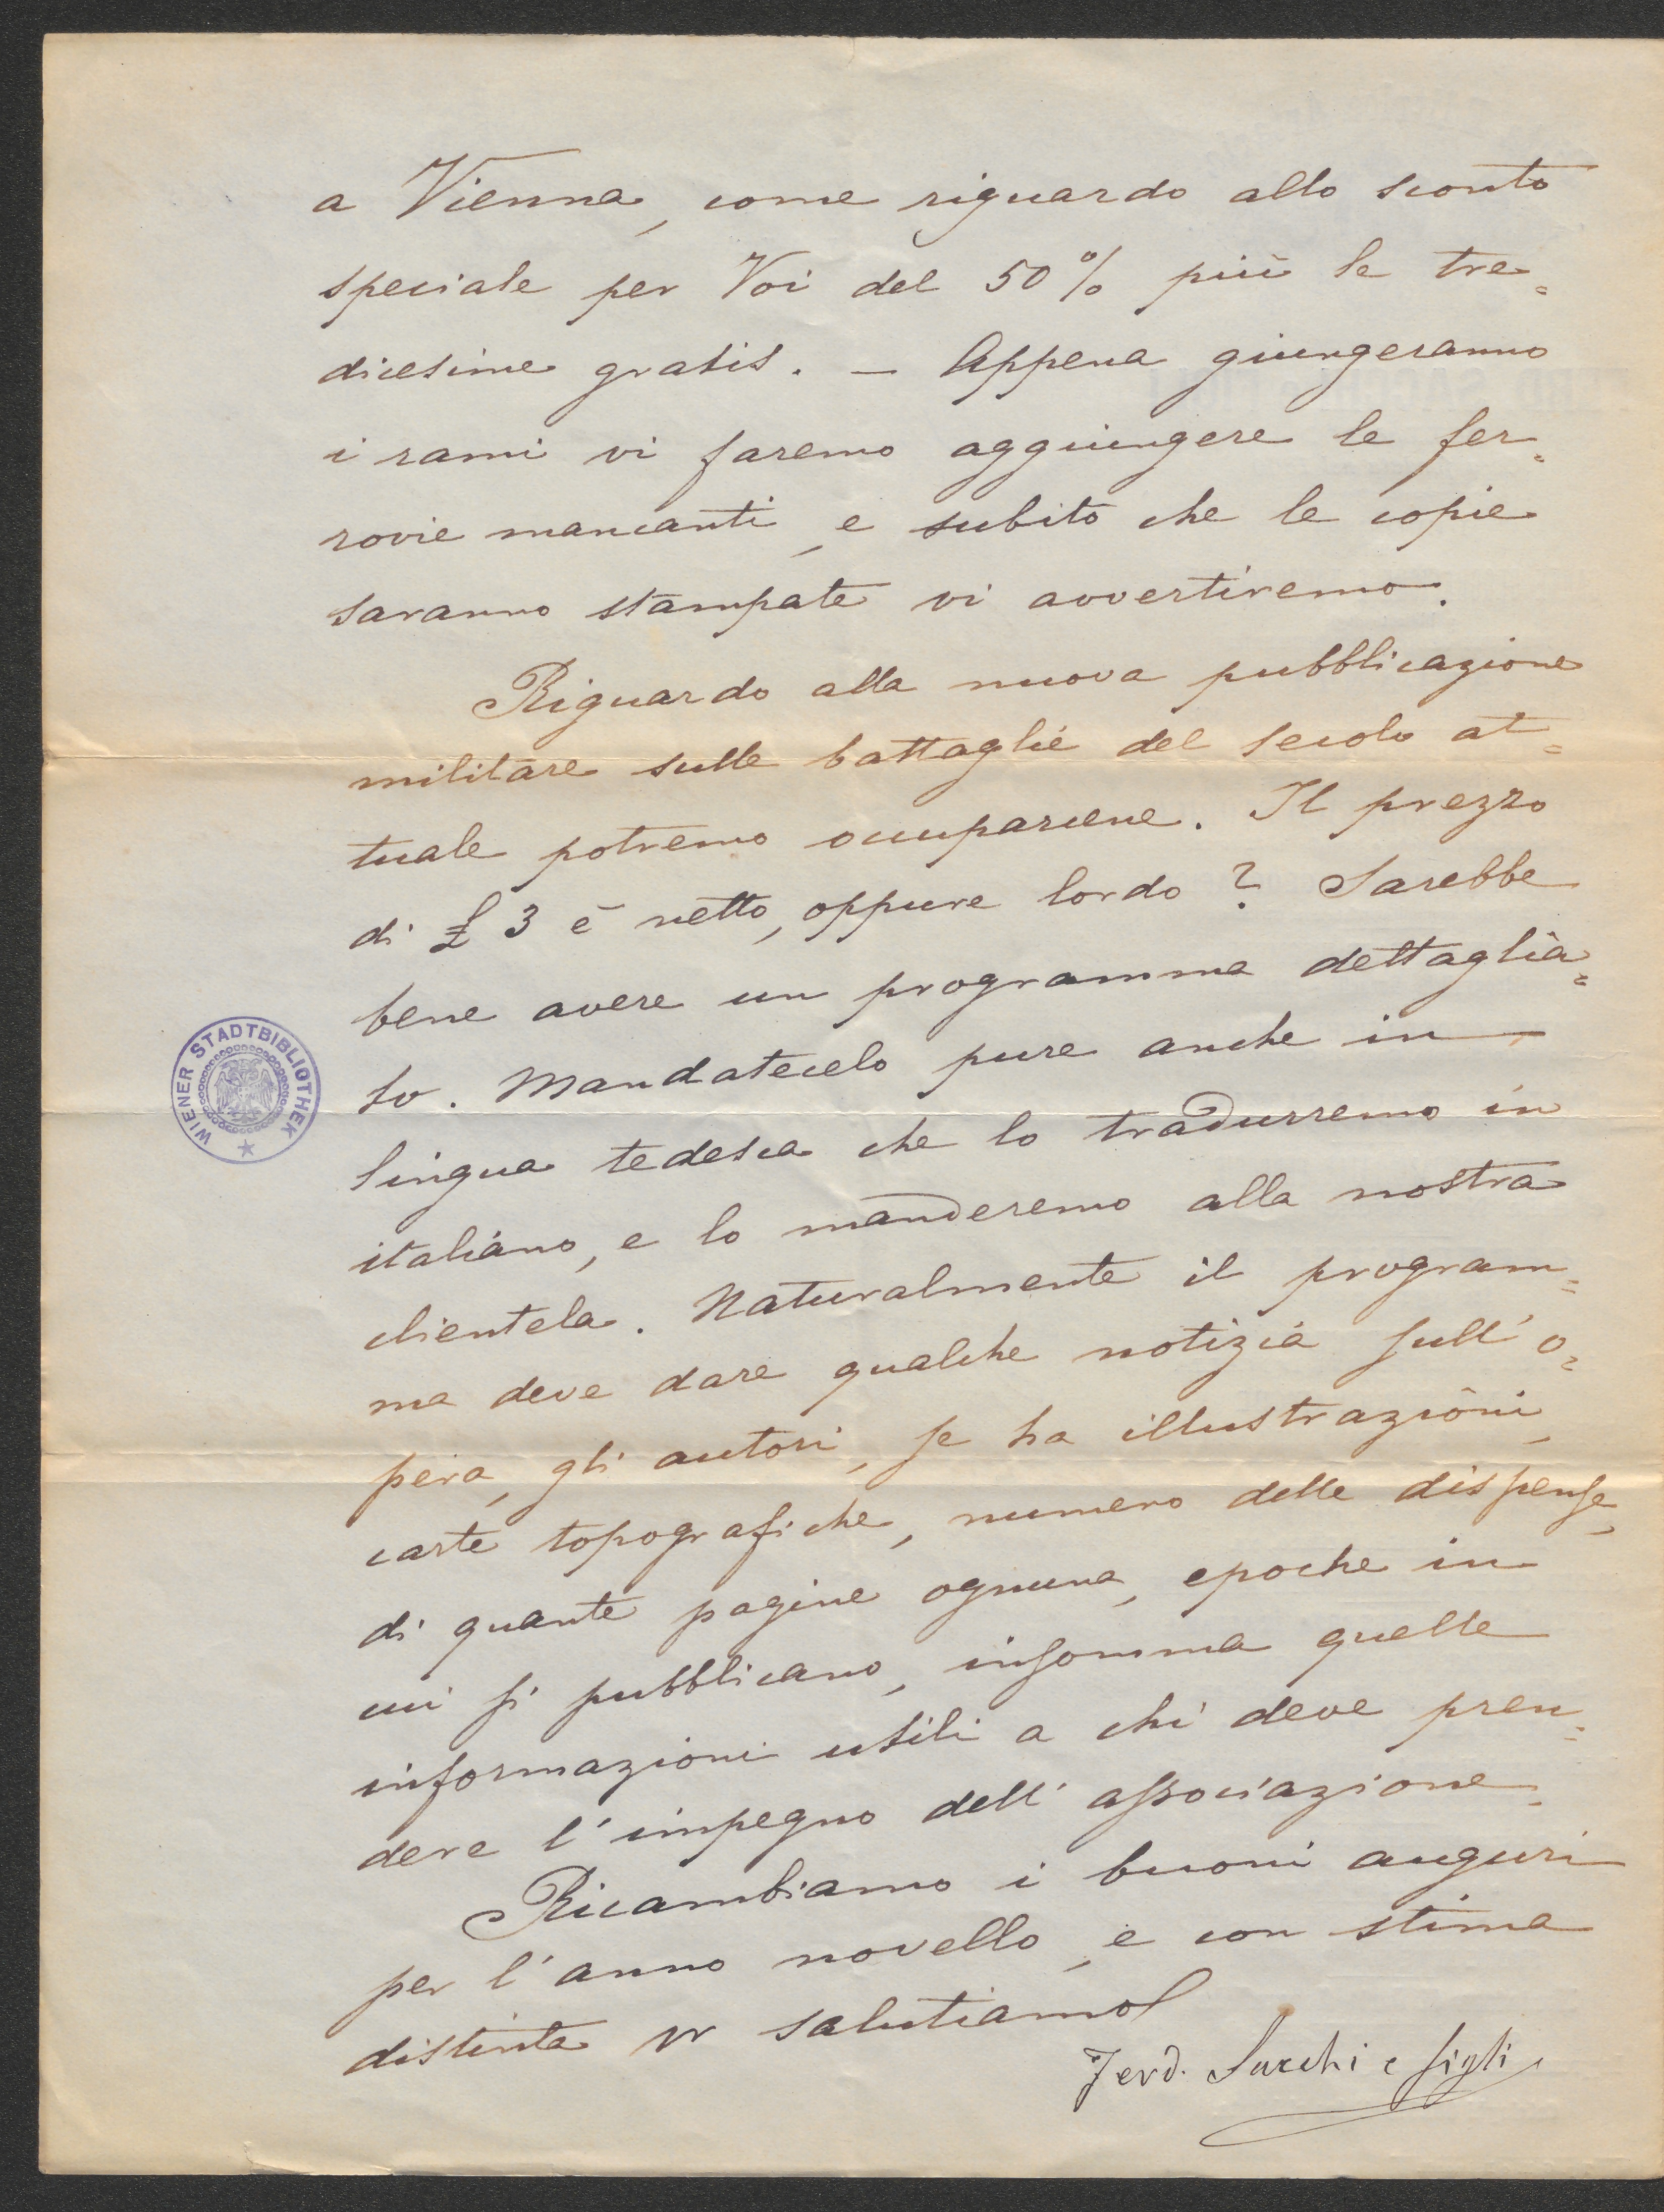 a Vienna, come riguardo allo sconto
speciale per Voi del 50% più le tre=
dicesime gratis. — Appena giungeranno
i rami vi faremo aggiungere le fer=
rovie mancanti, e subito che le copie
saranno stampate vi avvertiremo.
Riguardo alla nuova pubblicazione
militare sulle battaglie del secolo at=
tuale potremo occuparcene. Il prezzo
di £ 3 è netto, oppure lordo? Sarebbe
bene avere un programma dettaglia=
to. Mandatecelo pure anche in
lingua tedesca che lo tradurremo in
italiano, e lo manderemo alla nostra
clientela. Naturalmente il program=
ma deve dare qualche notizia sull'o=
pera, gli autori, se ha illustrazioni,
carte topografiche, numero delle dispense,
di quante pagine ognuna, epoche in
cui si pubblicano, insomma quelle
informazioni utili a chi deve pren=
dere l'impegno dell'associazione.
Ricambiamo i buoni auguri
per l'anno novello, e con stima
distinta vi salutiamo
Ferd. Sacchi e figli
WIENER STADTBIBLIOTHEK